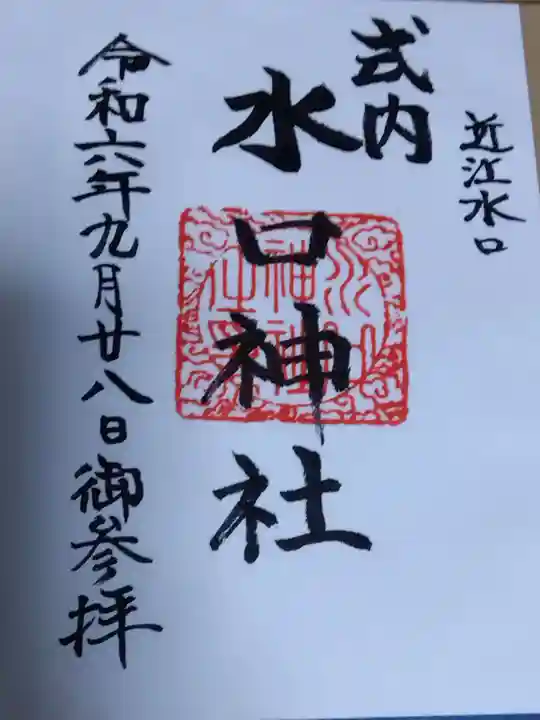 近江水口
式内
水口神社
令和六年九月廿八日御参拝